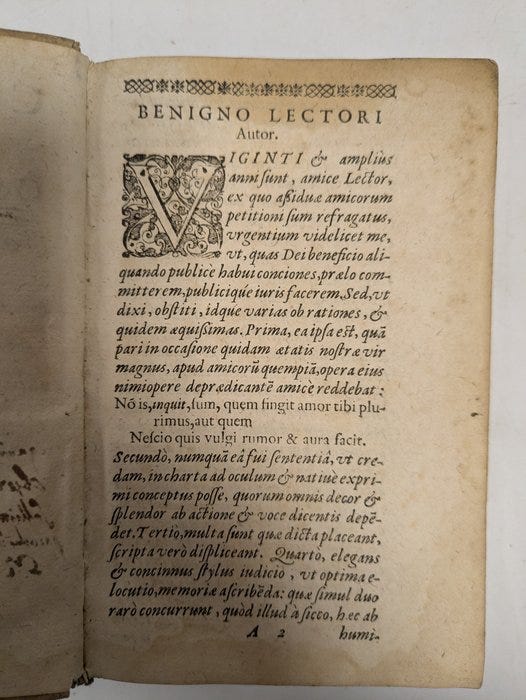 BENIGNO LECTORI
Autor.
VIGINTI & ampliùs
anni sunt, amice Lector,
ex quo aßiduæ amicorum
petitioni sum refragatus,
vrgentium videlicet me,
vt, quas Dei beneficio ali-
quando publicè habui conciones, prælo com-
mitterem, publiciq́ue iuris facerem. Sed, vt
dixi, obstiti, idque varias ob rationes, &
quidem æquißimas. Prima, ea ipsa est, quâ
pari in occasione quidam ætatis nostræ vir
magnus, apud amicorũ quempiã, opera eius
nimiopere deprædicantẽ amicè reddebat:
Nõ is, inquit, sum, quem fingit amor tibi plu-
rimus, aut quem
Nescio quis vulgi rumor & aura facit.
Secundò, numquã eâ fui sententiâ, vt cre-
dam, in charta ad oculum & natiuè expri-
mi conceptus posse, quorum omnis decor &
splendor ab actione & voce dicentis depẽ-
det. Tertiò, multa sunt quæ dicta placeant,
scripta verò displiceant. Quartò, elegans
& concinnus stylus iudicio, vt optima e-
locutio, memoriæ ascribẽda: quæ simul duo
rarò concurrunt, quòd illud à sicco, hæc ab
A 2 humi-